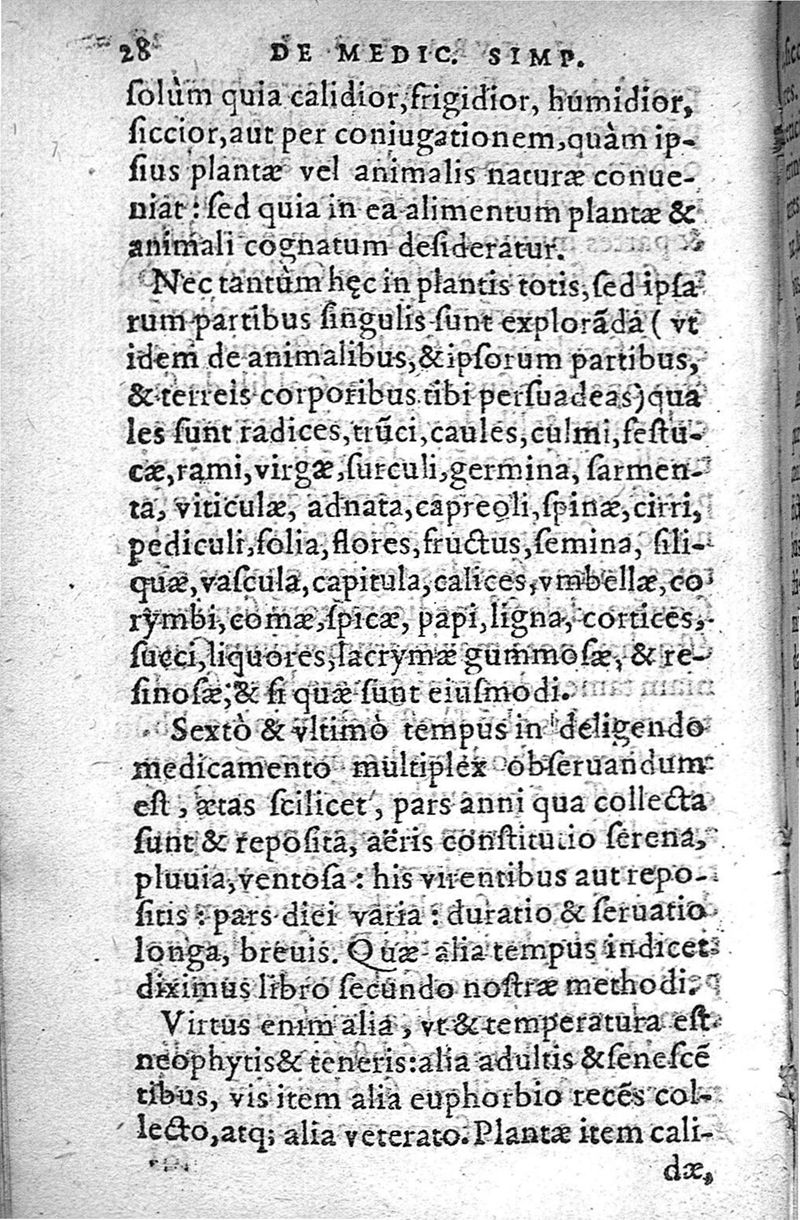 28 DE MEDIC. SIMP.
ſolùm quia calidior, frigidior, humidior,
ſiccior, aut per coniugationem, quàm ip-
ſius plantæ vel animalis naturæ conue-
niat: ſed quia in ea alimentum plantæ &
animali cognatum deſideratur.
Nec tantùm hęc in plantis totis, ſed ipſa
rum partibus ſingulis ſunt explorãda ( vt
idem de animalibus, & ipſorum partibus,
& terreis corporibus tibi perſuadeas) qua
les ſunt radices, trũci, caules, culmi, feſtu-
cæ, rami, virgæ, ſurculi, germina, ſarmen-
ta, viticulæ, adnata, capreoli, ſpinæ, cirri,
pediculi, folia, flores, fructus, ſemina, ſili-
quæ, vaſcula, capitula, calices, vmbellæ, co
rymbi, comæ, ſpicæ, papi, ligna, cortices,
ſucci, liquores, lacrymæ gummoſæ, & re-
ſinoſæ, & ſi quæ ſunt eiuſmodi.
Sextò & vltimò tempus in deligendo
medicamento multiplex obſeruandum
eſt, ætas ſcilicet, pars anni qua collecta
ſunt & repoſita, aëris conſtitutio ſerena,
pluuia, ventoſa: his virentibus aut repo-
ſitis: pars diei varia: duratio & ſeruatio
longa, breuis. Quæ alia tempus indicet
diximus libro ſecundo noſtræ methodi.
Virtus enim alia, vt & temperatura eſt
neophytis & teneris: alia adultis & ſeneſcẽ
tibus, vis item alia euphorbio recẽs col-
lecto, atq; alia veterato. Plantæ item cali-
dæ,